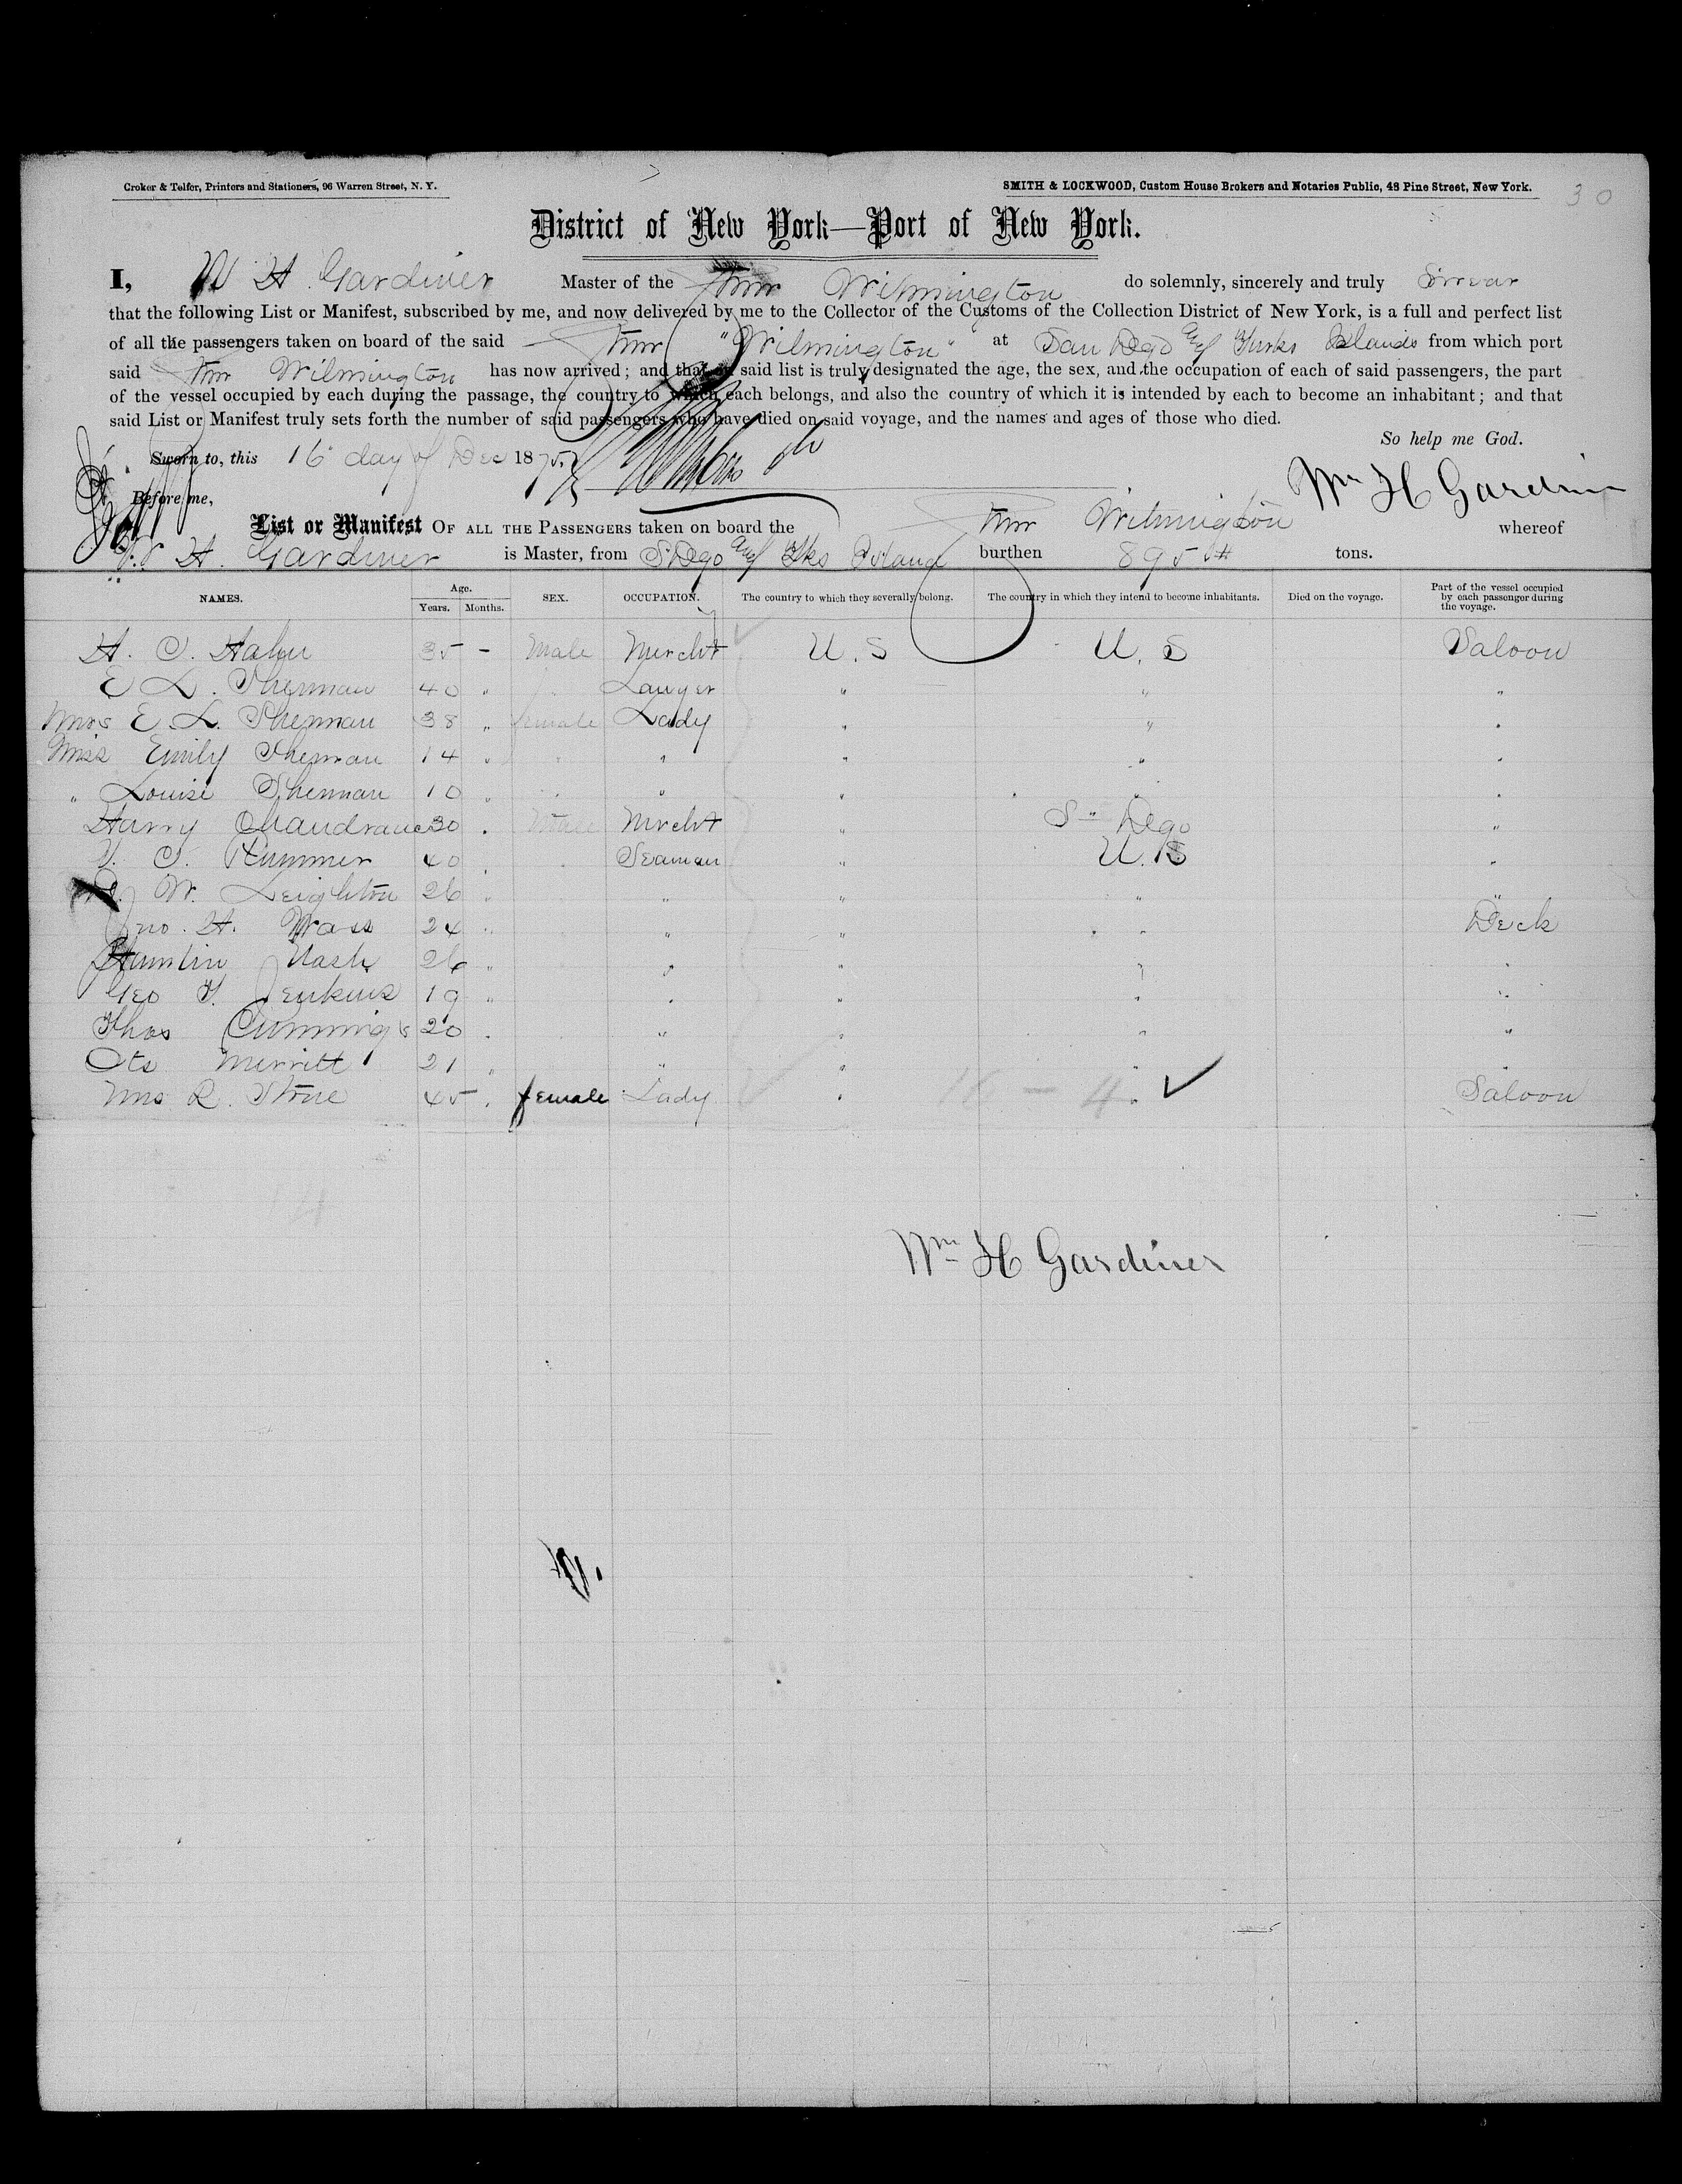 Croker & Telfer, Printers and Stationers, 96 Warren Street, N. Y.
SMITH & LOCKWOOD, Custom House Brokers and Notaries Public, 48 Pine Street, New York.
30
District of New York—Port of New York.
I, W H Gardiner Master of the Stmr Wilmington do solemnly, sincerely and truly Swear
that the following List or Manifest, subscribed by me, and now delivered by me to the Collector of the Customs of the Collection District of New York, is a full and perfect list
of all the passengers taken on board of the said Stmr "Wilmington" at San Dgo and Turks Islands from which port
said Stmr Wilmington has now arrived; and that on said list is truly designated the age, the sex, and the occupation of each of said passengers, the part
of the vessel occupied by each during the passage, the country to which each belongs, and also the country of which it is intended by each to become an inhabitant; and that
said List or Manifest truly sets forth the number of said passengers who have died on said voyage, and the names and ages of those who died.
So help me God.
Sworn to, this 16 day of Dec 1875
Wm H Gardiner
Before me,
List or Manifest OF ALL THE PASSENGERS taken on board the Stmr Wilmington whereof
W H. Gardiner is Master, from S Dgo and Tks Island burthen 895 tons.
NAMES. Age. Years. Months. SEX. OCCUPATION. The country to which they severally belong. The country in which they intend to become inhabitants. Died on the voyage. Part of the vessel occupied by each passenger during the voyage.
H. Hahn 35 - Male Mercht U.S U.S Saloon
E L. Sherman 40 " " Lawyer " " "
Mrs E. L. Sherman 38 " female Lady " " "
Miss Emily Sherman 14 " " " " " "
" Louise Sherman 10 " " " " " "
Harry 30 " Male Mercht " Sto Dgo "
Rummer 40 " " Seaman " U.S "
W. Leighton 26 " " " " "
Jno. H. Wass 24 " " " " Deck
Hamlin Nash 26 " " " " "
Geo T. Jenkins 19 " " " " "
Thos Cummings 20 " " " " "
Ots Merritt 21 " " " " "
Mrs R. Stone 45 " female Lady " " Saloon
16 - 4
14
Wm H Gardiner